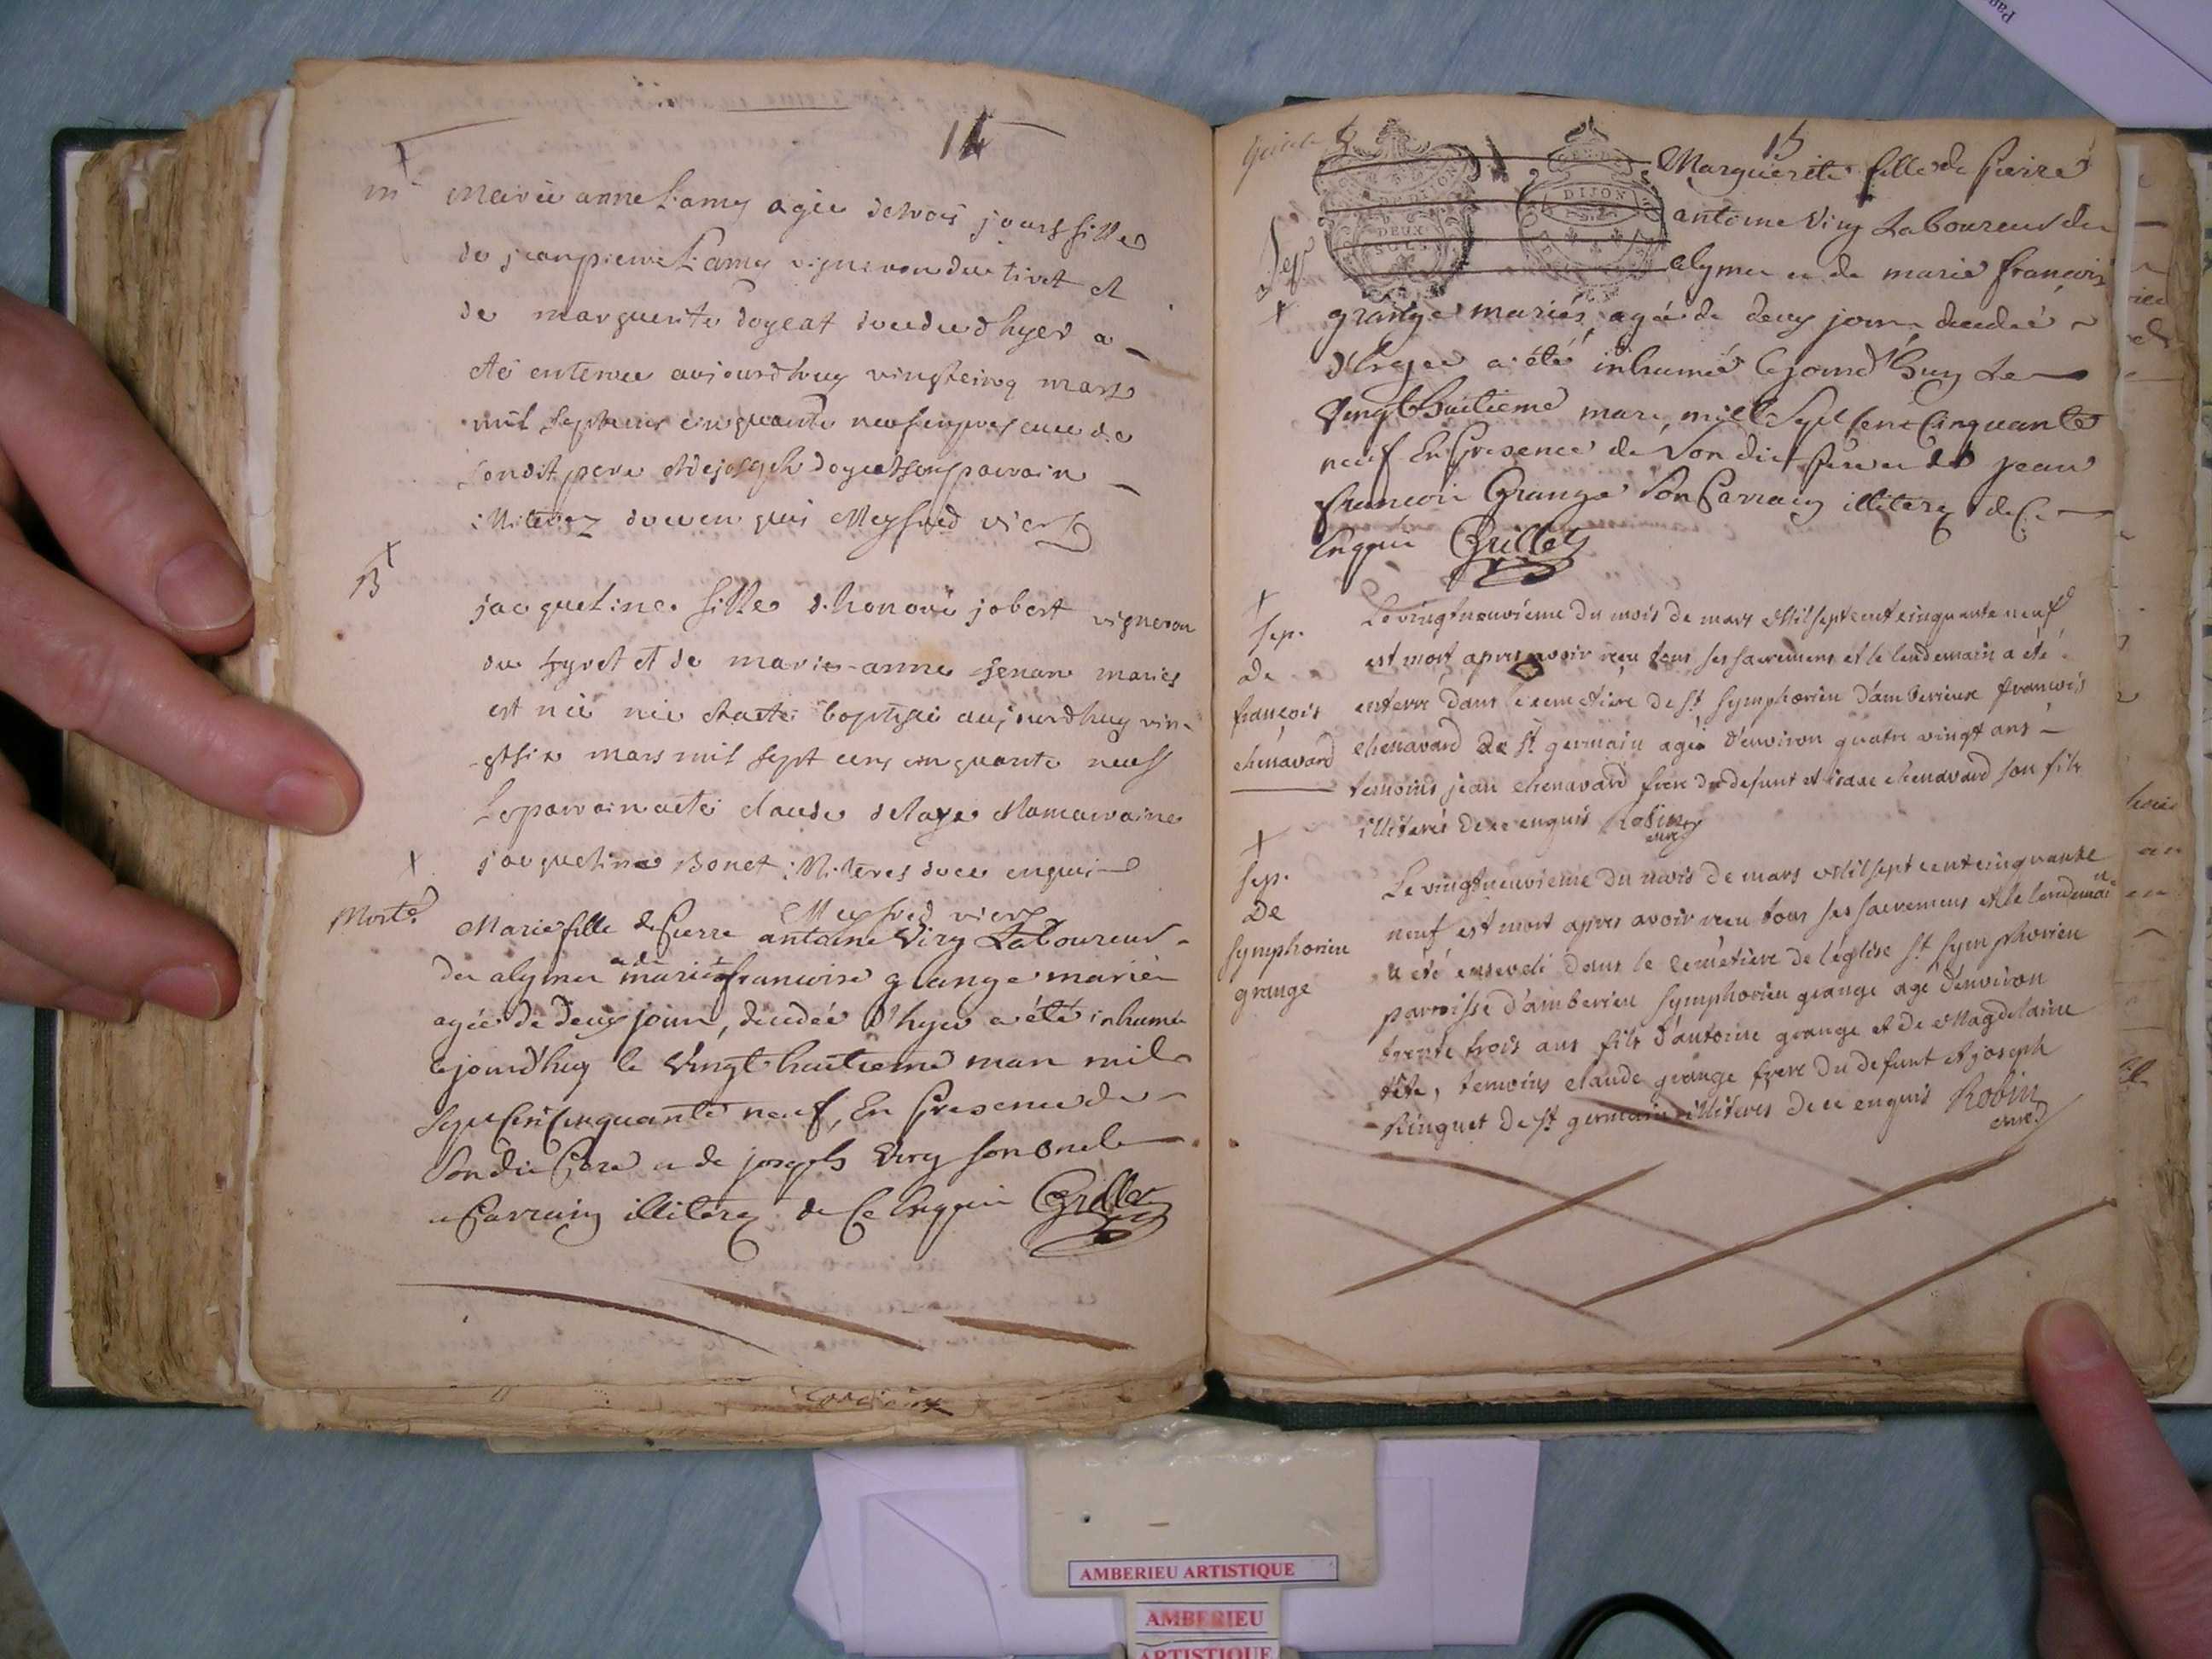 14
m
Marie anne Lamy agée de trois jours fille
de jean pierre Lamy vigneron du tiret et
de marguerite doyeat décédée d'hyer a
eté enterrée aujourdhuy vingtcinq mars
mil sept cens cinquante neuf en presence de
sondit pere et de joseph doyeat son parrain
illiterez de ce enquis Meyfred vicr
B
jacqueline fille d'honoré jobert vigneron
du tyret et de marie-anne genan maries
est née et a eté baptisée aujourdhuy vin-
gtsix mars mil sept cens cinquante neuf
le parrain a eté claude delaye la marraine
jacqueline Bonet illiteres de ce enquis
Meyfred vicr
Morte
Marie fille de Pierre antoine Viry Laboureur
de alymer et de marie francoise grange mariés
agée de deux jours, décédée d'hyer a été inhumé
cejourd'huy le vingt huitieme mars mil
sept cent cinquante neuf, En presence de
son dit Pere et de joseph Viry son oncle
et Parrain illiterez de ce Enquis Grillet
15
DIJON
DEUX
SOLS
DIJON
Marguerite fille de pierre
antoine Viry Laboureur de
alymer et de marie francois
Sep
grange mariés, agée de deux jours décédée
d'hyer a été inhumée cejourd'huy Le
Vingt huitieme mars, mille Sept Cent Cinquante
neuf En Presence de Son dit Pere et de jean
francois Grange Son Parrain illiterez de Ce
Enquis Grillet
Sep.
de
françois
chenavard
Le vingtneuvième du mois de mars Mil sept cent cinquante neuf
est mort apres avoir reçu tous ses sacremens et le lendemain a été
enterré dans le cemetiere de St Symphorien d'amberieux francois
chenavard de St germain agé d'environ quatre vingt ans
temoins jean chenavard frere du defunt et isaac chenavard son fils
illiterés de ce enquis Robin
curé
Sep.
De
Symphorien
grange
Le vingtneuvieme du mois de mars Mil sept cent cinquante
neuf est mort apres avoir reçu tous ses sacremens et le lendemain
a été enseveli dans le cemetiere de l'église St Symphorien
paroisse d'amberieu Symphorien grange agé d'environ
trente trois ans fils d'antoine grange et de Magdelaine
tête, temoins claude grange frere du defunt et joseph
Ringuet de St germain illiteres de ce enquis Robin
curé
AMBERIEU ARTISTIQUE
AMBERIEU
ARTISTIQUE